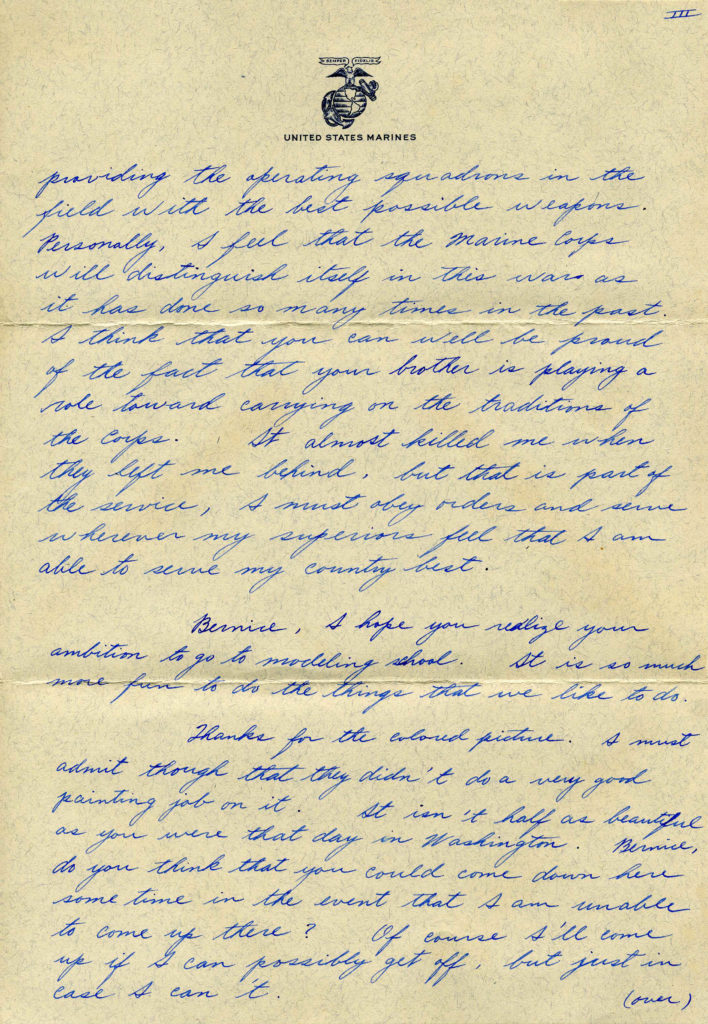 III
SEMPER FIDELIS
UNITED STATES MARINES
providing the operating squadrons in the
field with the best possible weapons.
Personally, I feel that the Marine Corps
will distinguish itself in this war as
it has done so many times in the past.
I think that you can well be proud
of the fact that your brother is playing a
role toward carrying on the traditions of
the Corps. It almost killed me when
they left me behind, but that is part of
the service, I must obey orders and serve
wherever my superiors feel that I am
able to serve my country best.
Bernice, I hope you realize your
ambition to go to modeling school. It is so much
more fun to do the things that we like to do.
Thanks for the colored picture. I must
admit though that they didn't do a very good
painting job on it. It isn't half as beautiful
as you were that day in Washington. Bernice,
do you think that you could come down here
some time in the event that I am unable
to come up there? Of course I'll come
up if I can possibly get off, but just in
case I can't. (over)